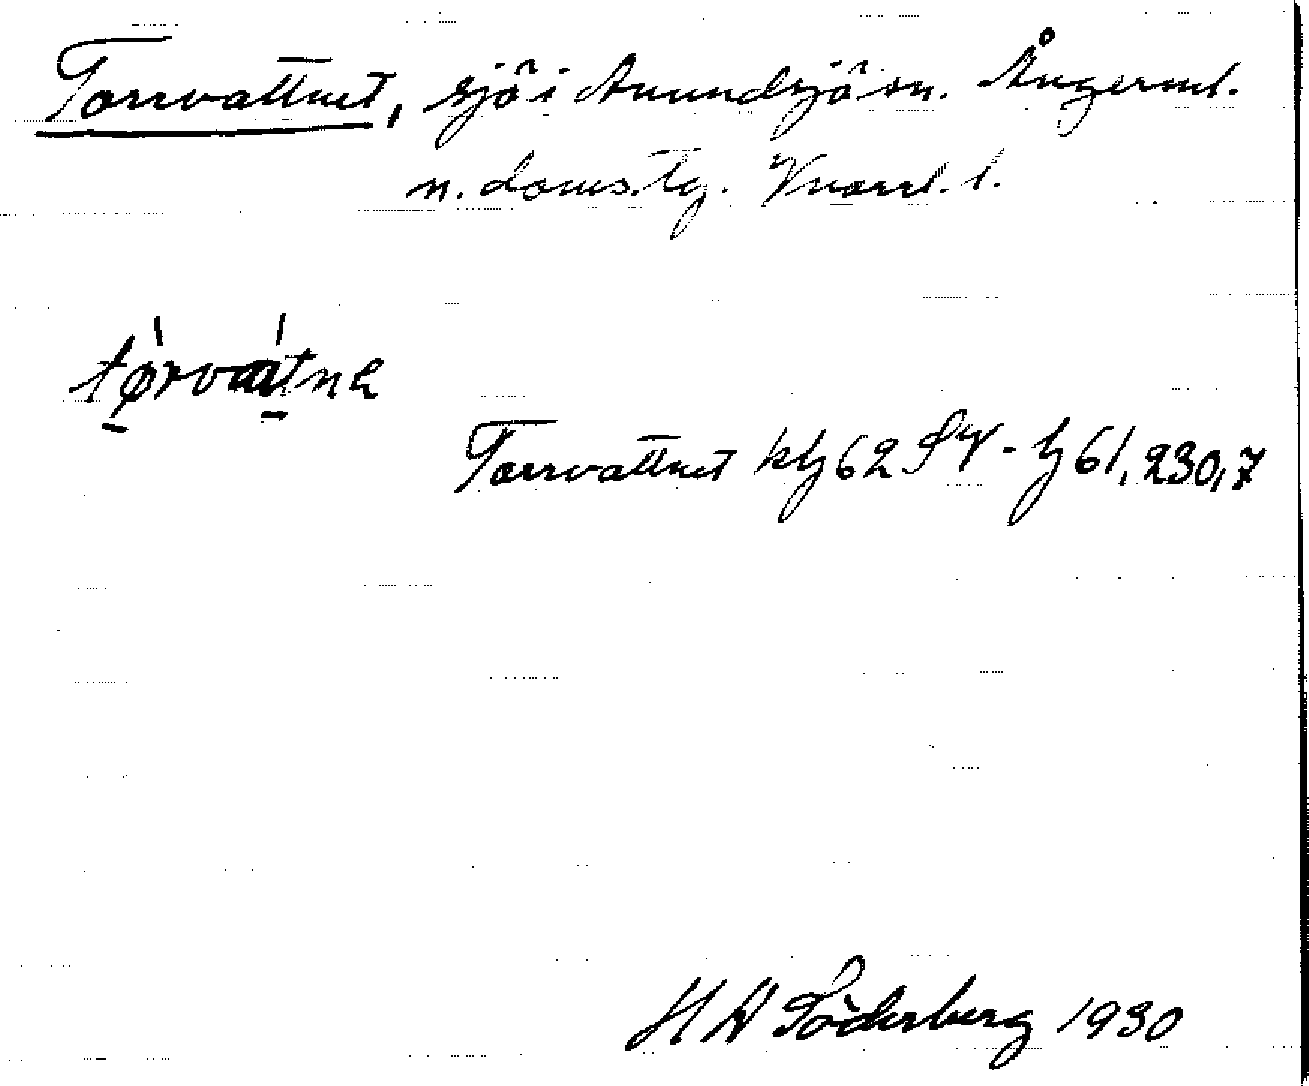 Torrvattnet, sjö i Anundsjö sn. Ångerml.
n. doms. tg. Vnorrl. l.
tørvatnɐ
Torrvattnet kbl 62 SV - bl 61, 230,7
H W Söderberg 1930